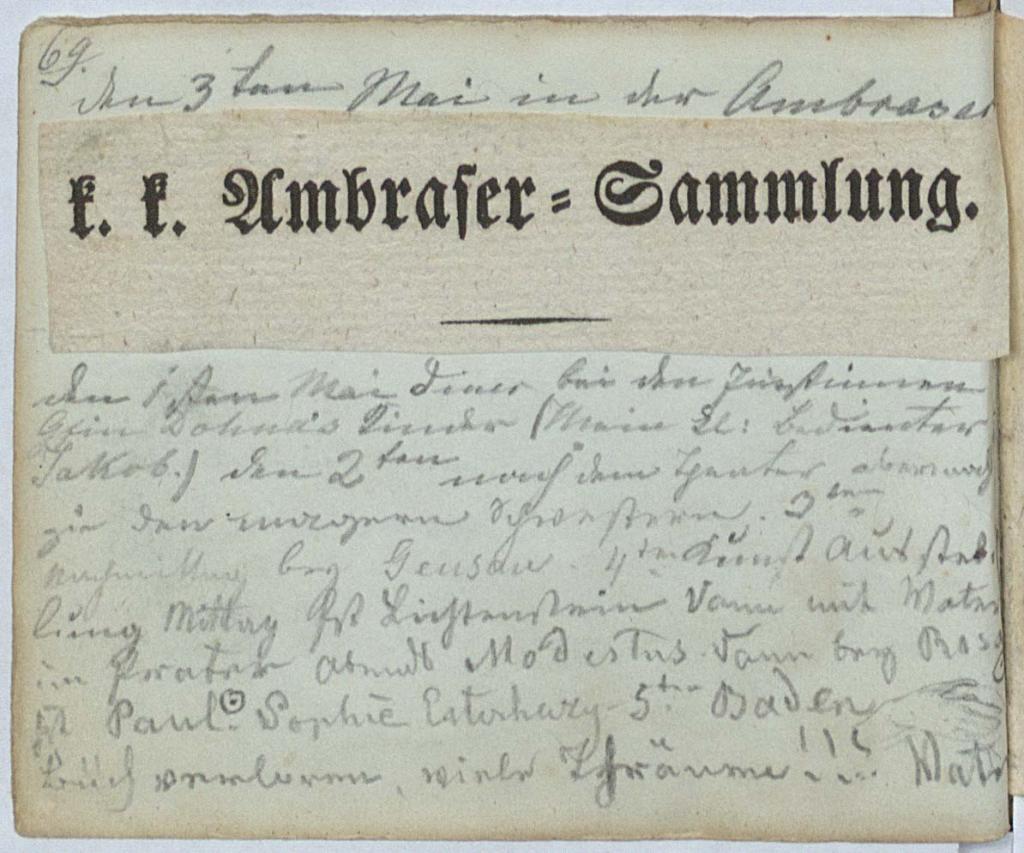 69.
den 3ten Mai in der Ambraser
k. k. Ambraser-Sammlung.
den 1sten Mai Diner bei den Fürstinnen
Dohna's Kinder (Mein Kl: Bedienter
Jakob.) den 2ten nach dem Theater abermals
zu den magern Schwestern. 3ten
Nachmittag bey Geusau. 4ten Kunst Ausstel
lung Mittag Fst Lichtenstein dann mit Vater
im Prater abends Modestus dann bey
Paul. Sophie Esterhazy 5ten Baden
Buch verloren, viele Thräume!!! Vater